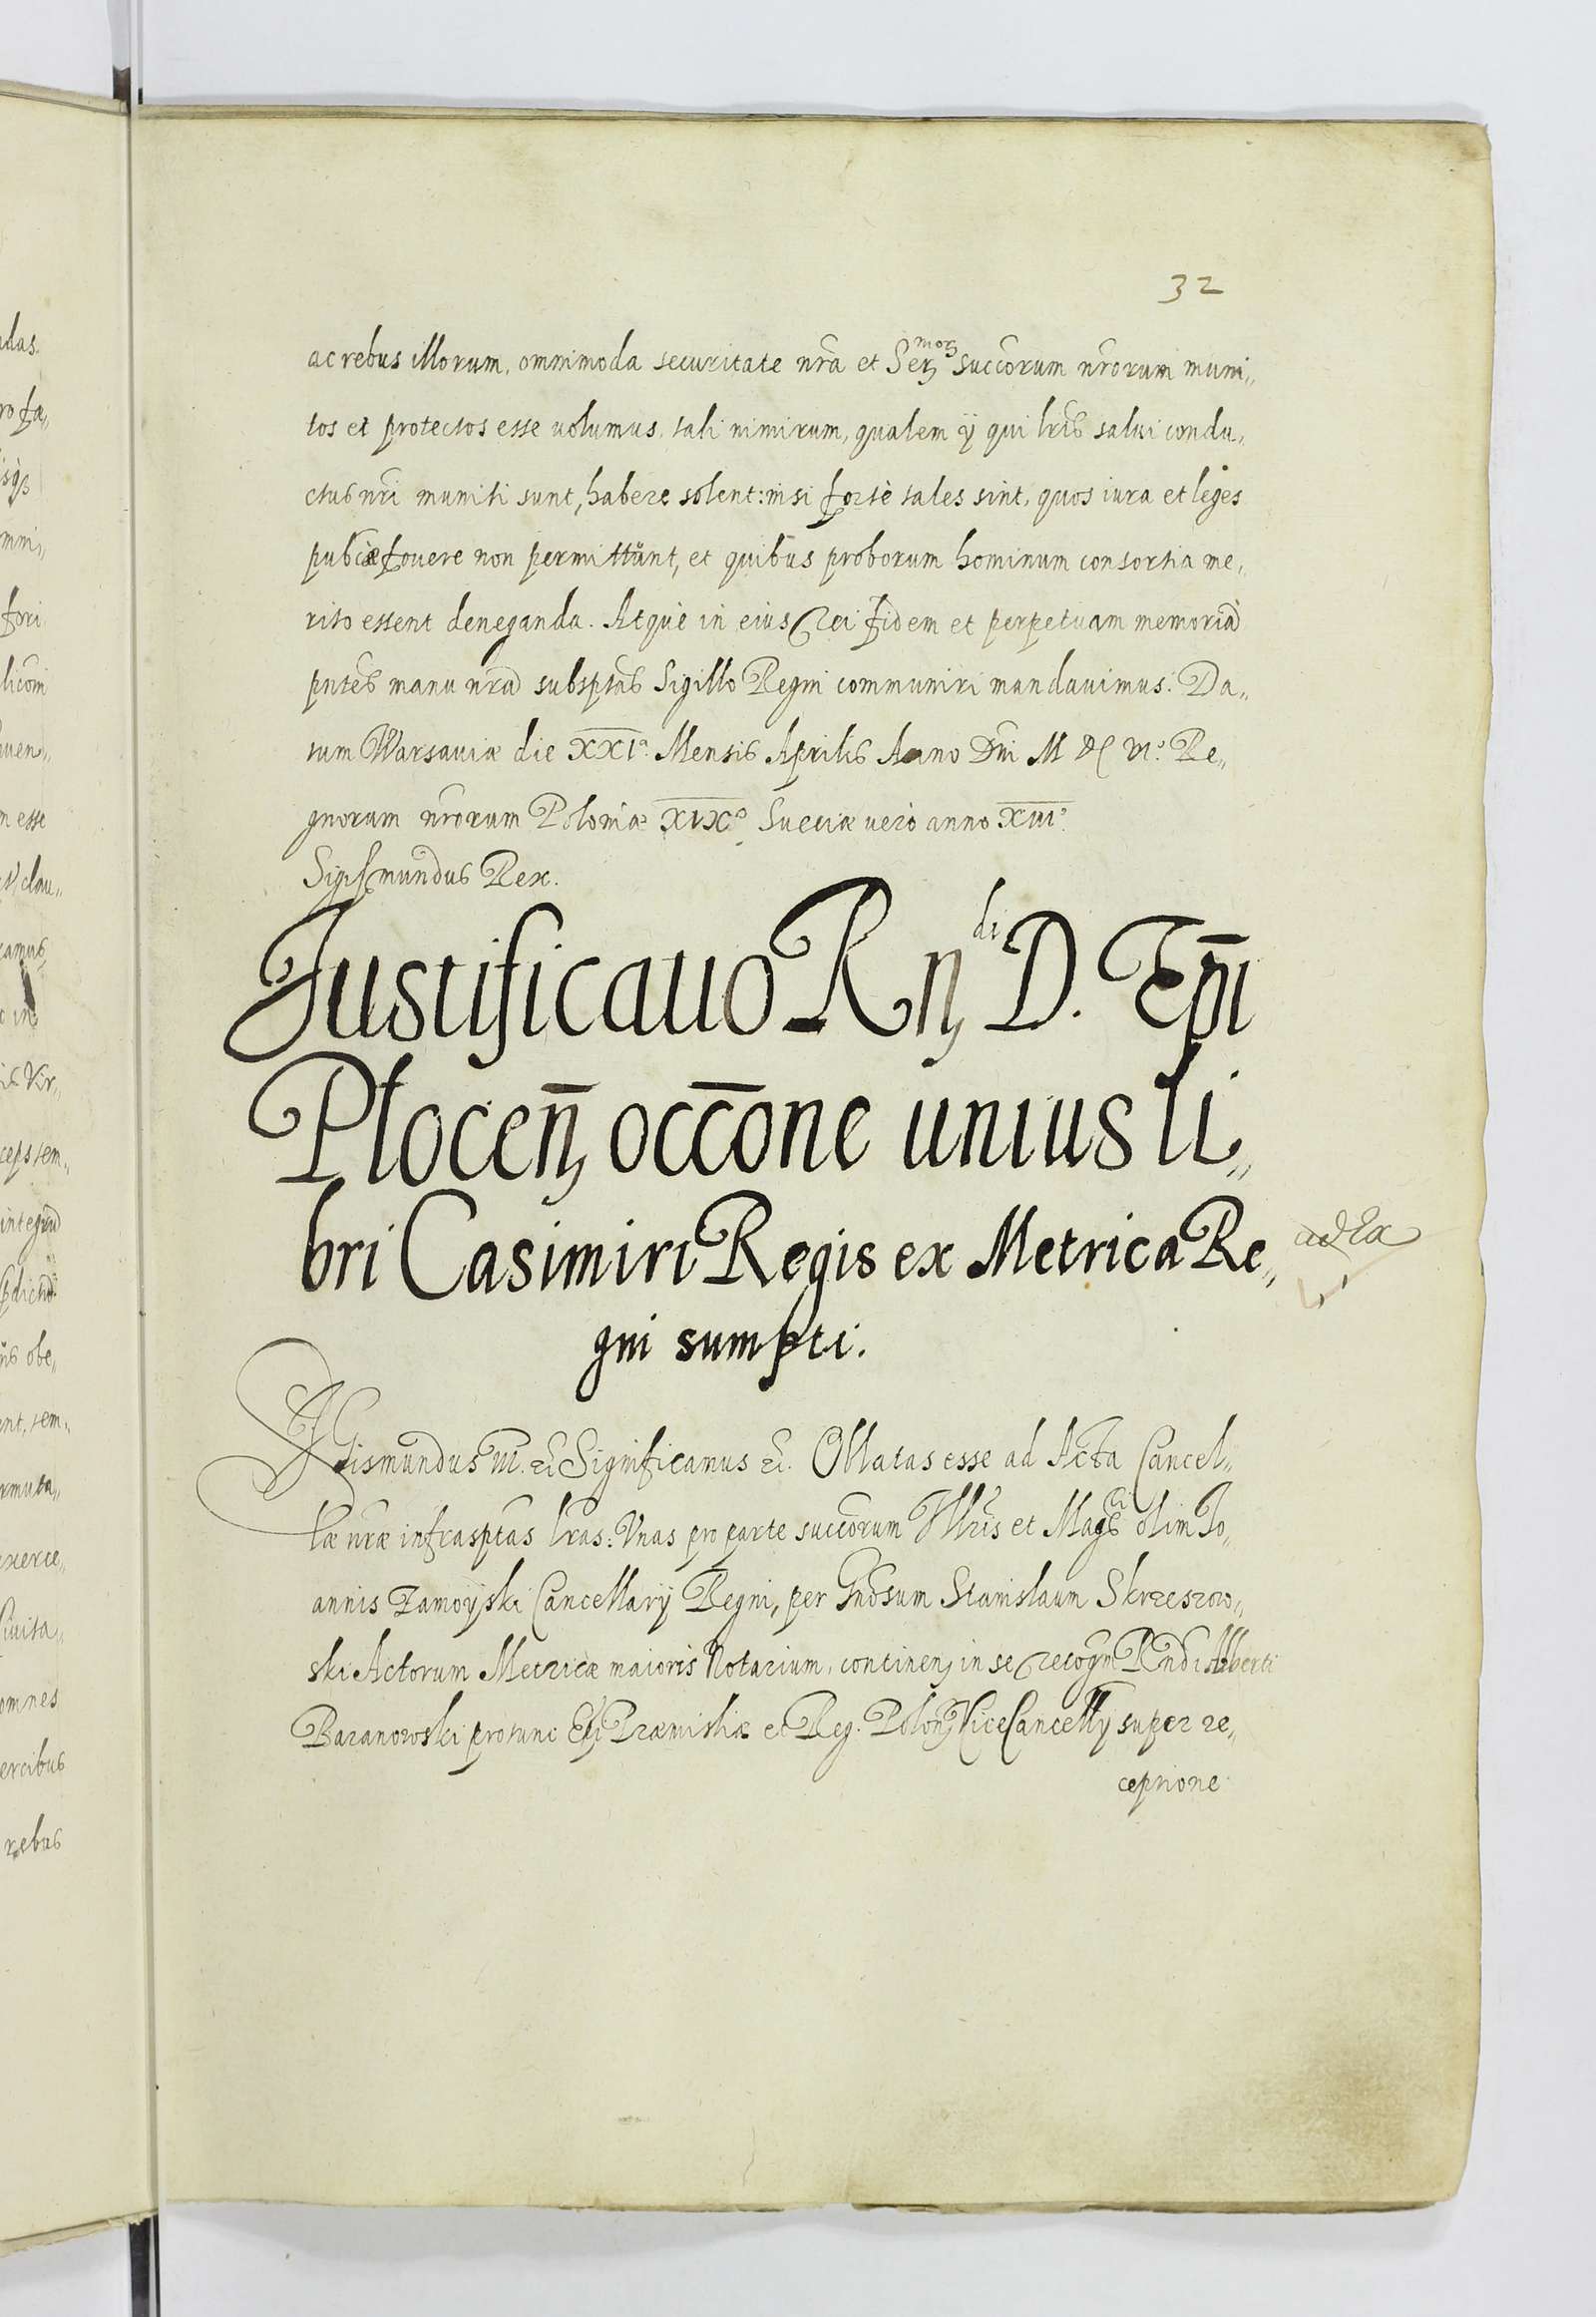 32
ac rebus illorum, omnimoda securitate nr̃a et Ser: mor: succ̃orum nr̃orum muni„
tos et protectos esse uolumus, tali nimirum, qualem ij qui lr̃is salui condu„
ctus nr̃i muniti sunt, habere solent: nisi fortè tales sint, quos iura et leges
pub̃cæ fouere non permittũnt, et quibus proborum hominum consortia me„
rito essent deneganda. Atquè in eius rei fidem et perpetuam memoriã
pñtes manu nr̃a subsp̃tas Sigillo Regni communiri mandauimus. Da„
tum Warsauiæ die XXIº. Mensis Aprilis Anno Dñi M DC VIº. Re„
gnorum nr̃orum Poloniæ XIXº. Sueciæ uerò anno XIIIº.
Sigismundus Rex.
Justificatio Rn̄di D. Ep̄i
Plocen̄ occ̄one unius li„
bri Casimiri Regis ex Metrica Re„
gni sumpti.
SIGismundus III. etc̃ Significamus etc̃. Oblatas esse ad Acta Cancel„
læ nr̃æ infrasp̃tas lr̃as: Vnas pro parte succ̃orum Ill̃ris et Mag̃ci olim Jo„
annis Zamoÿski Cancellarÿ Regni, per Gñosum Stanislaum Skrzeszow„
ski Actorum Metricæ maioris Notarium, continen̄ in se recogñ Rndi Alberti
Baranowski protunc Ep̄i Præmisliæ et Reg. Polon̄ ViceCancell̃ÿ super re„
ceptione